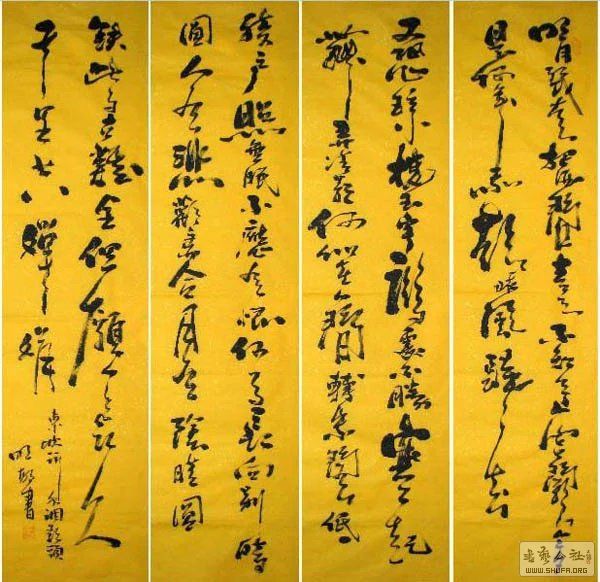 明月幾時有把酒問青天不知天上宮闕今夕
是何年我欲乘風歸去
又恐瓊樓玉宇高處不勝寒起
舞弄清影何似在人間轉朱閣低
綺户照無眠不應有恨何事長向別時
圓人有悲歡離合月有陰晴圓
缺此事古難全但願人長久
千里共嬋娟
東坡詞水調歌頭
書
WWW.SHUFA.ORG